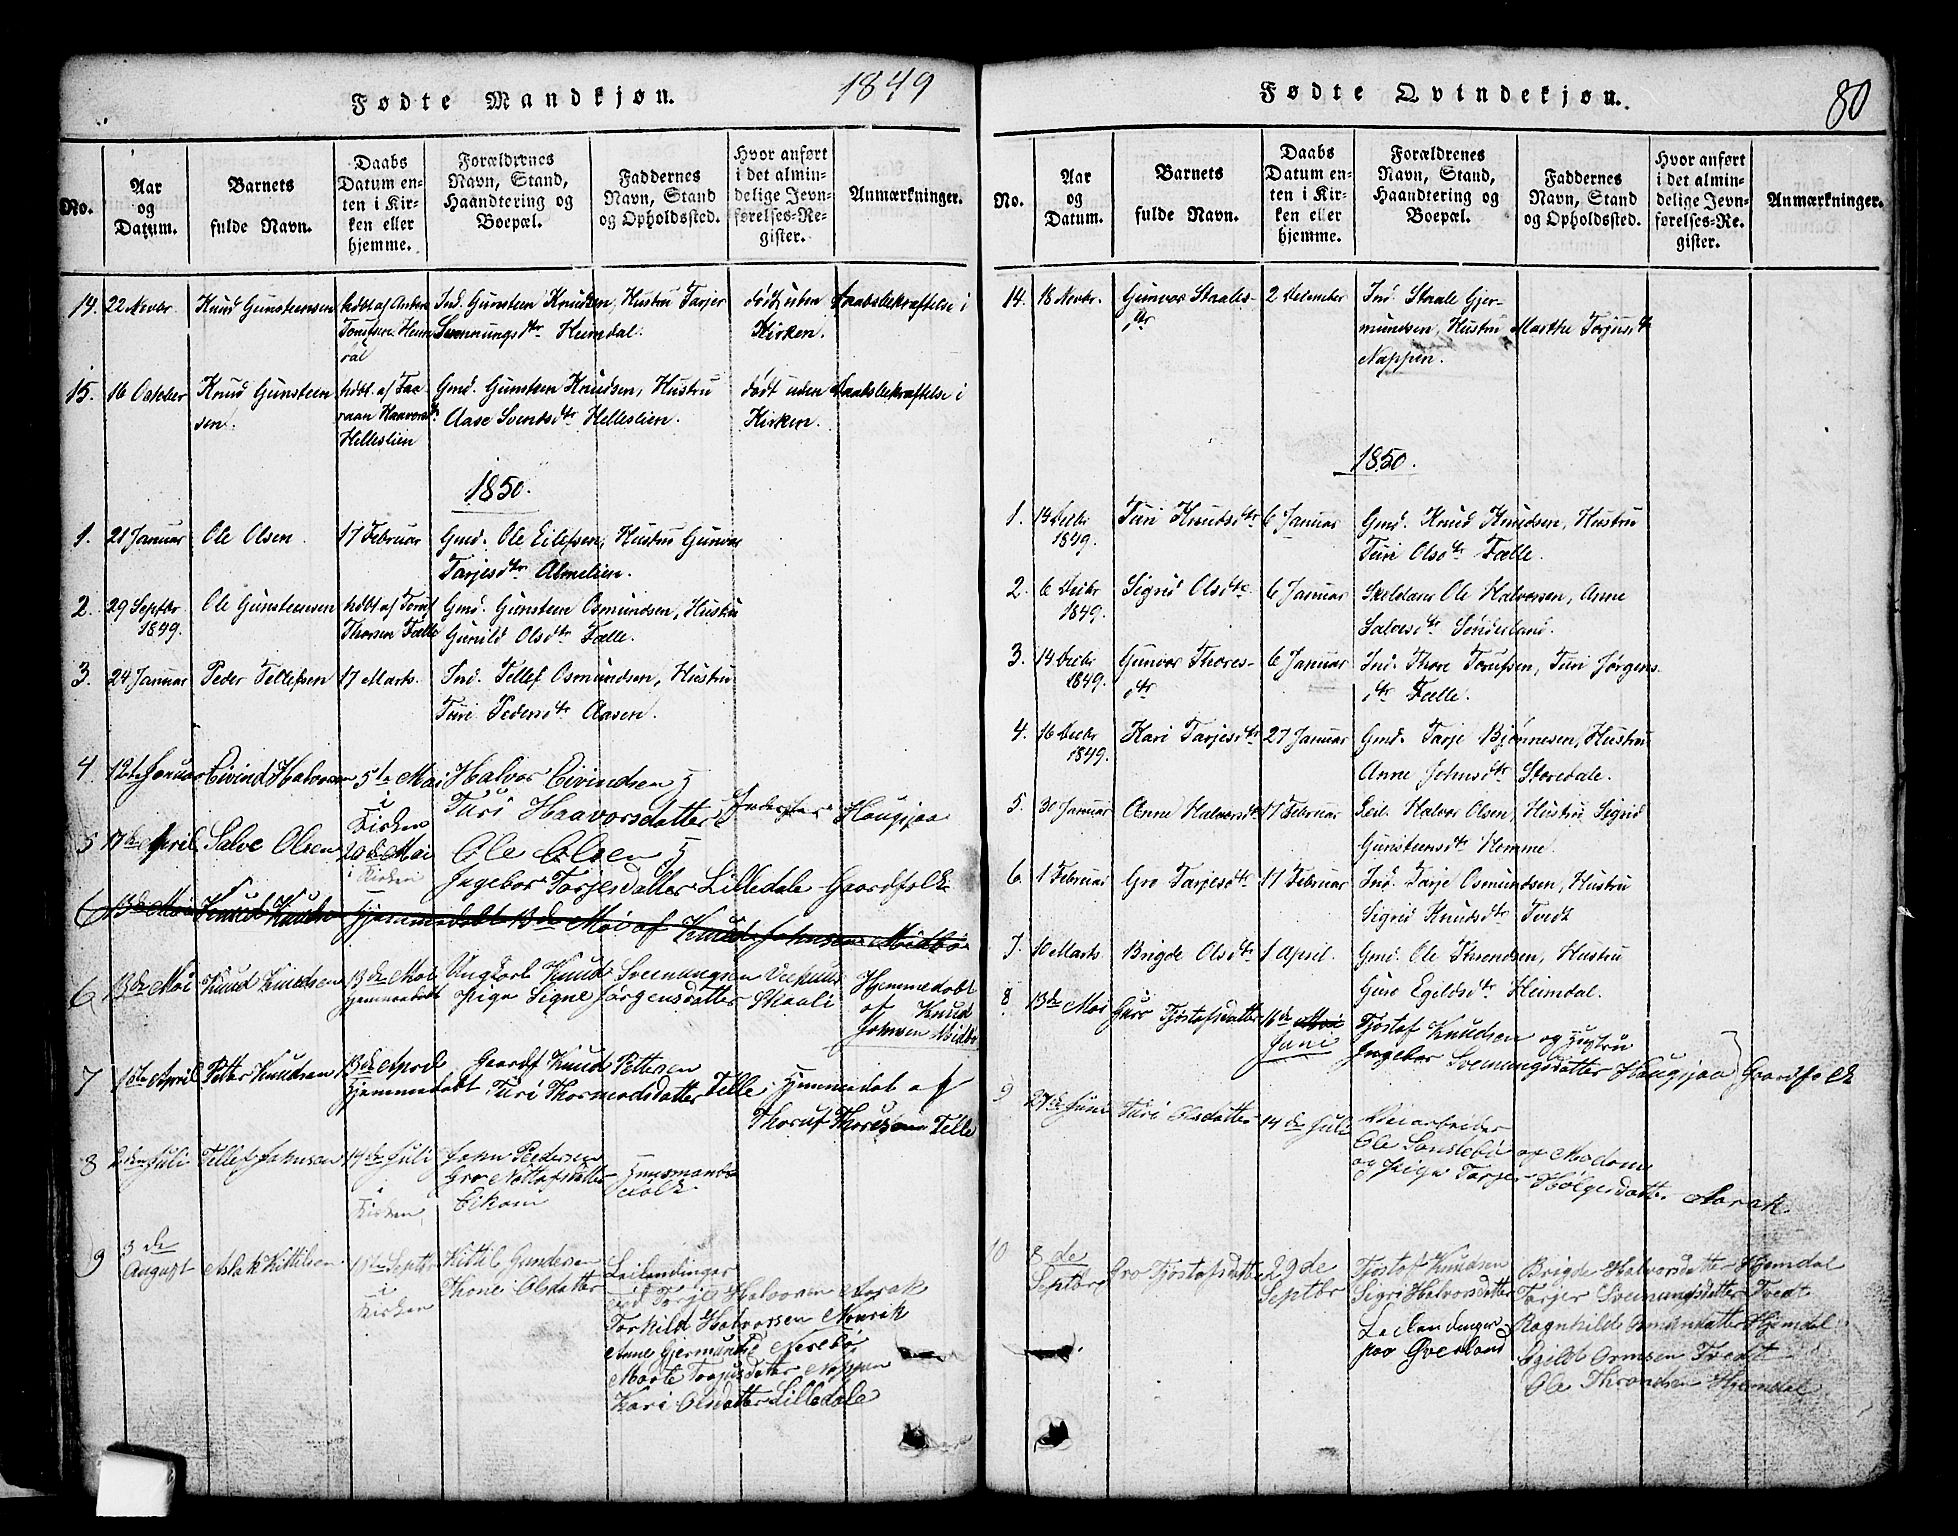 Fødte Mandkjøn.
1849
No.
Aar
og
Datum.
Barnets
fulde Navn.
Daabs
Datum en-
ten i Kir-
ken eller
hjemme.
Forældrenes
Navn, Stand,
Haandtering og
Boepæl.
Faddernes
Navn, Stand
og Opholdssted.
Hvor anført
i det almin-
delige Jevn-
førelses-Re-
gister.
Anmærkninger.
14. 22 Novbr Knud Gunsteensen Ind. Gunsteen Knudsen, Hustru Tarjer
Svennungsdtr Heimdal.
født uden Daabsbekræftelse i
Kirken.
15. 16 October Knud Gunsteen
sen.
hdbt. af Taa-
raan Haavorsdtr
Helleslien
Gmd. Gunsteen Knudsen, Hustru
Aase Svendsdtr Helleslien.
født uden Daabsbekræftelse i
Kirken.
1850.
1. 21 Januar Ole Olsen. 17 Februar Gmd. Ole Eilefsen, Hustru Gunvor
Tarjesdtr Almelien.
2. 29 Septbr
1849.
Ole Gunsteensen hdbt af Toruf
Thorsen Fælle
Gmd. Gunsteen Osmundsen, Hustru
Gunild Olsdtr Fælle.
3. 24 Januar Peder Tellefsen 17 Marts. Ind. Tellef Osmundsen, Hustru
Turi Pedersdtr Aasen.
4 12te Januar Eivind Halvorsen 5te Mai
i
Kirken
Halvor Eivindsen
Turi Haavorsdatter Haugsjaa
5 17de April Salve Olsen 20de Mai
i Kirken
Ole Olsen
Ingebor Tarjesdatter Lilledale Gaardfolk
6 13de Mai Knud Knudsen Hjemmedøbt 13de Mai af Knud Johnsen Midbø
6 13de Mai Knud Knudsen 13de Mai
Hjemmedøbt
Ungkarl Knud Sveinungsen
Pige Signe Jørgensdatter Skaali
Hjemmedøbt
af Knud
Johnsen Midbø
7 10de April Petter Knudsen 13de April
Hjemmedøbt
Gaardf Knud Pettersen
Turi Thormodsdatter Felle
Hjemmedøbt af
Thoruf Thorsen Felle
8 2den Juli Tellef Johnsen 14de Juli
i
Kirken
John Pedersen
Gro Nottofsdatter
Eikaas
Huusmands
Folk
9 3de
August
Aslak Kittilsen Septbr
i
Kirken
Kittil Gundersen
Thone Olsdatter
Leilendinger
Fad Tarje Halvorsen Aarak
Torkild Halvorsen Norrik
Anne Gjermundsd Nesebø
Marte Tarjusdatter Nappen
Kari Olsdatter Lilledale
Fødte Qvindekjøn.
80
No.
Aar
og
Datum.
Barnets
fulde Navn.
Daabs
Datum en-
ten i Kir-
ken eller
hjemme.
Forældrenes
Navn, Stand,
Haandtering og
Boepæl.
Faddernes
Navn, Stand
og Opholdssted.
Hvor anført
i det almin-
delige Jevn-
førelses-Re-
gister.
Anmærkninger.
14. 18 Novbr. Gunvor Staales-
dtr
2 December Ind. Staale Gjer-
mundsen, Hustru Marthe Tarjusdtr
Nappen.
1850.
1. 14 Decbr
1849.
Turi Knudsdtr 6 Januar Gmd. Knud Knudsen, Hustru
Turi Olsdtr Fælle.
2. 6 Decbr
1849.
Sigrid Olsdtr 6 Januar Ole Halvorsen, Anne
Salvesdtr Sønderland.
3. 14 Decbr
1849.
Gunvor Thores-
dtr
6 Januar Ind. Thore Torufsen, Turi Jørgens-
dtr Fælle.
4. 16 Decbr
1849.
Kari Tarjesdtr 27 Januar Gmd. Tarje Bjønnesen, Hustru
Anne Johnsdtr Storedale.
5. 30 Januar Anne Halvorsdtr 17 Februar Leil. Halvor Olsen, Hustru Sigrid
Gunsteensdtr Hemme.
6. 1 Februar Gro Tarjesdtr 17 Februar Ind. Tarje Osmundsen, Hustru
Sigrid Knudsdtr Tvedt
7. 10 Marts Brigde Olsdtr 1 April. Gmd. Ole Throndsen, Hustru
Guro Egildsdtr Heimdal.
8 13de Mai Guro Tjøstafsdatter 16de Mai
Juni
Tjøstaf Knudsen og Hustru
Ingebor Sveinungsdatter Haugsjaa Gaardfolk
9 27de Juni Turi Olsdatter 14de Juli Veiarbeider
Ole Sanstebø af Modum
og Pige Tarjer Holgesdatter Aarak
10 8de
Septbr
Gro Tjøstafsdatter 29de
Septbr
Tjøstaf Knudsen
Sigri Halvorsdatter
Leilendinger
paa Øverland
Brigde Halvorsdatter Hjemdal
Tarjer Sveinungsdatter Tvedt
Ragnhilde Omundsdatter Hjemdal
Egildt Ormsen Tvedt
Ole Throndsen Hjemdal